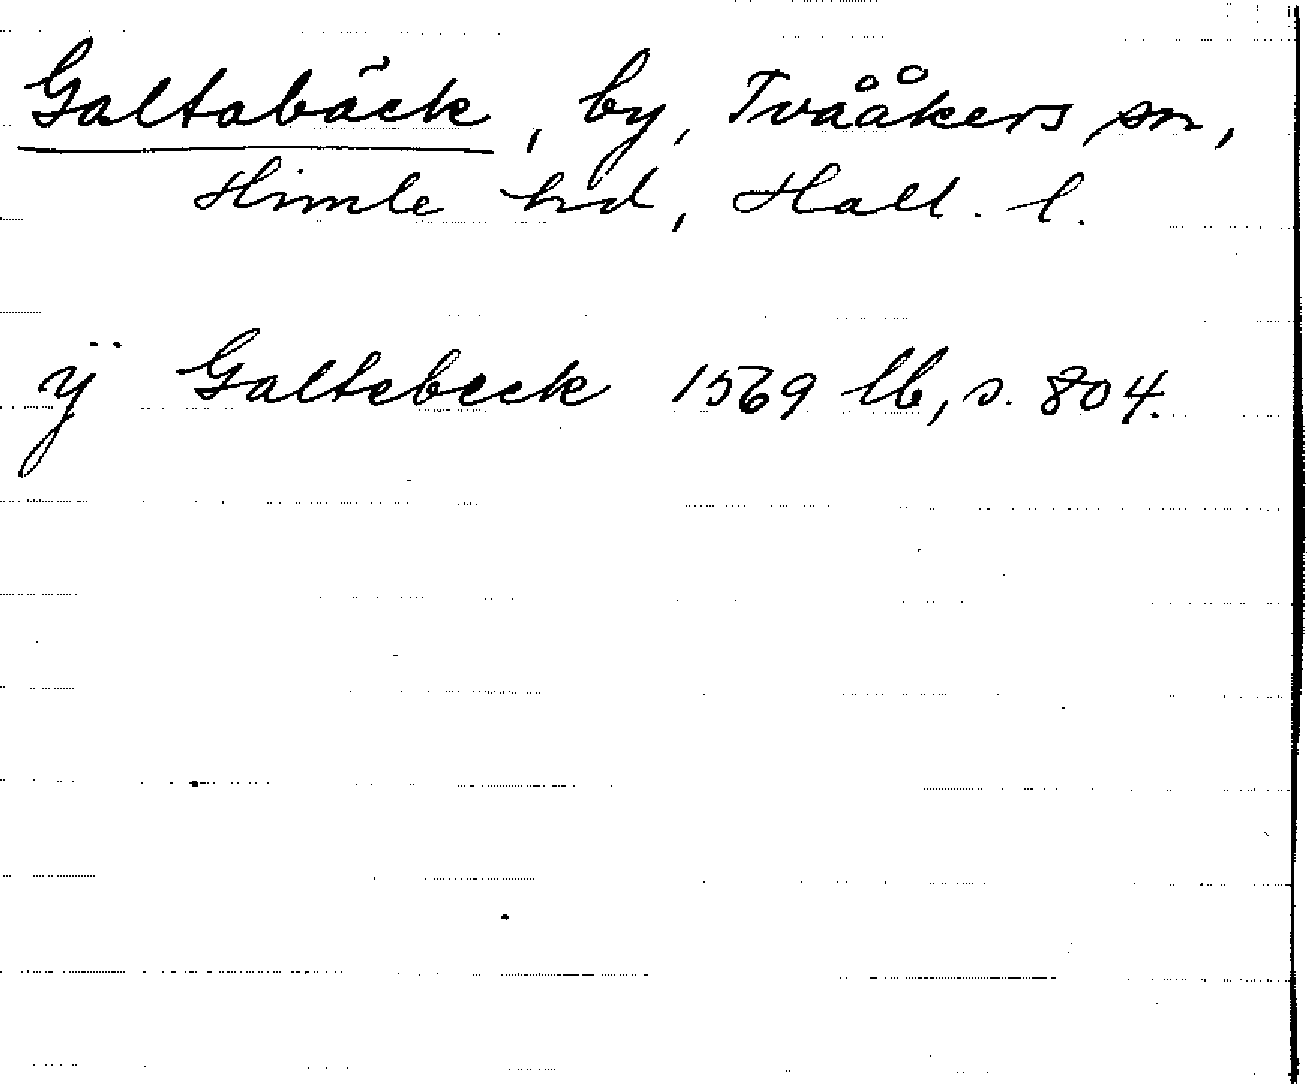 Galtabäck, by, Tvååkers sn,
Himle hd, Hall. l.
ÿ Galtebeck 1569 lb, s. 804.